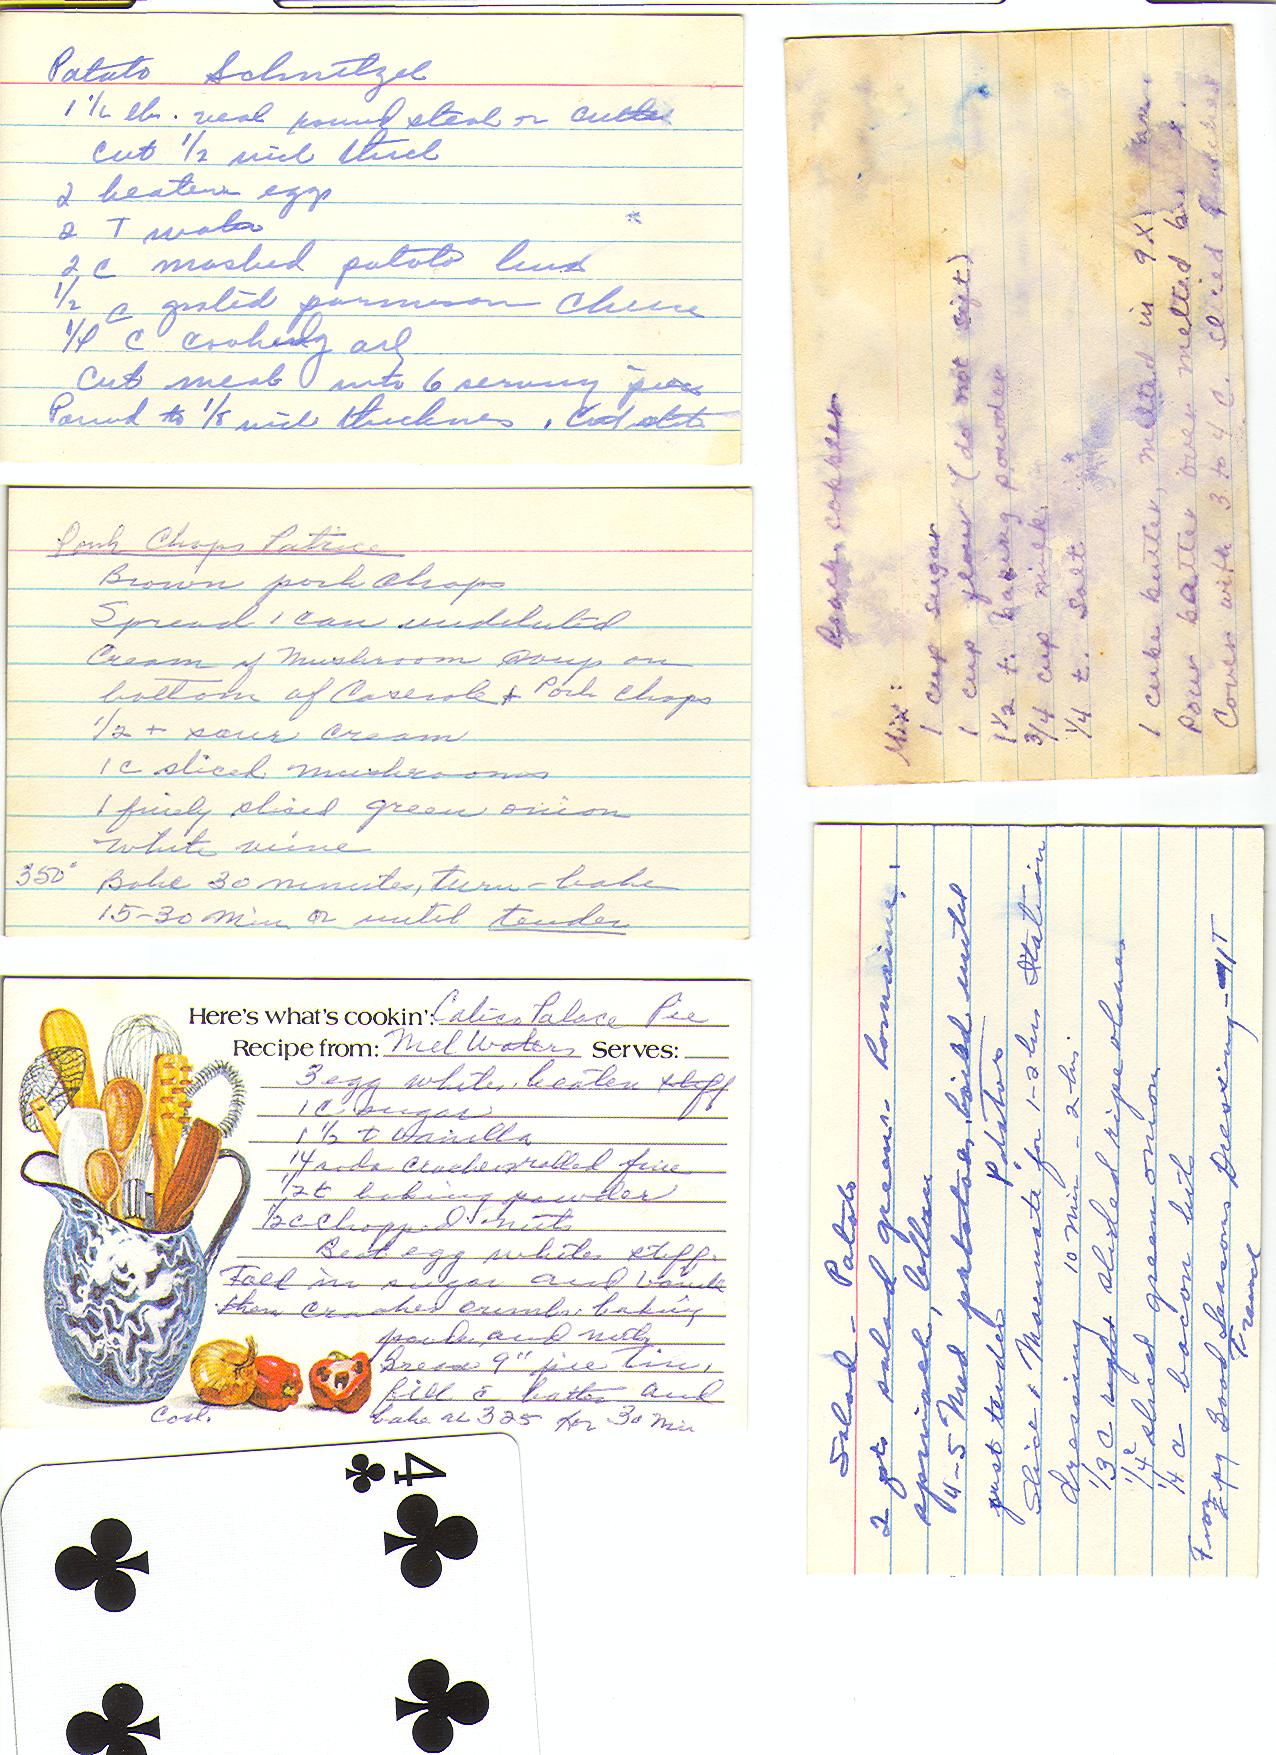 Potato Schnitzel
1 1/2 lbs. veal round steak or
cut 1/2 inch thick
2 beaten eggs
2 T water
*
2 c mashed potato
1/2 c grated parmeson cheese
1/4 c cooking oil
Cut meat into 6 serving pieces
Pound to 1/8 inch thickness, Cut
Pork Chops Patrice
Brown pork chops
Spread 1 can undiluted
Cream of Mushroom soup on
bottom of Caserole + Pork Chops
1/2 + sour cream
1 c sliced mushrooms
1 finely sliced green onion
White wine
350° Bake 30 minutes, turn - bake
15-30 min or until tender
Here's what's cookin': Calico Palace Pie
Recipe from: Mel Waters Serves:
3 egg whites, beaten stiff
1 c sugar
1 1/2 t vanilla
14 soda crackers rolled fine
1/2 t baking powder
1/2 c chopped nuts
Beat egg whites stiff.
Fold in sugar and vanilla
then cracker crumbs, baking
powder, and nuts
Grease 9" pie tin,
fill c batter and
bake at 325 for 30 min
Cool.
4
Peach cobbler
Mix:
1 cup sugar
1 cup flour (do not sift)
1 1/2 t. baking powder
3/4 cup milk
1/4 t. salt
1 cube butter, melted in 9X
Pour batter over melted
Cover with 3 to 4 c. sliced Peaches
Salad - Potato
2 qts salad greens - romaine,
spinach, lettuce
4-5 Med potatoes, boiled until
just tender Potatoes
Slice & Marinate for 1-2 hrs Italian
dressing 10 min - 2 hrs.
1/3 C sliced ripe olives
1/4 c sliced green onion
1/4 c bacon bits
1/2 pg Good Seasons Dressing - 1T